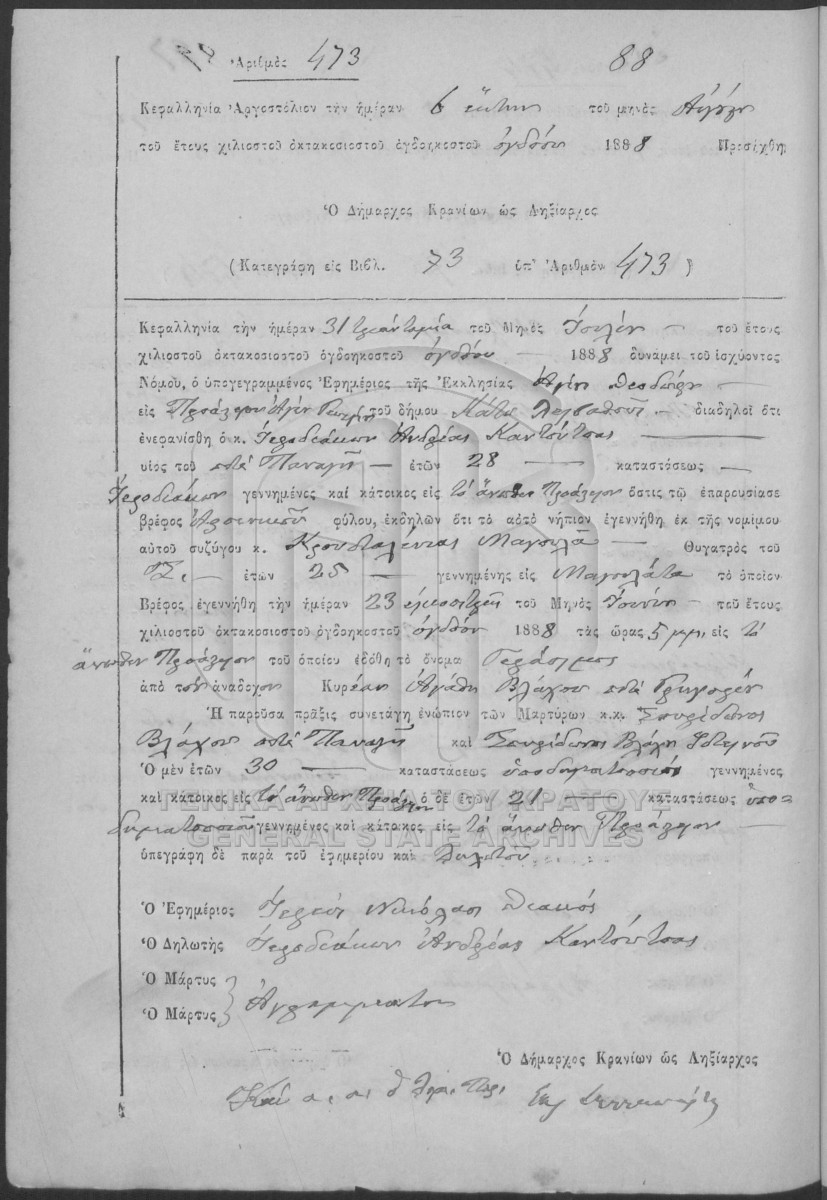 Ἀριθμὸς 473 88
Κεφαλληνία Ἀργοστόλιον τὴν ἡμέραν 6 ἕκτην τοῦ μηνὸς Αὐγούστου
τοῦ ἔτους χιλιοστοῦ ὀκτακοσιοστοῦ ὀγδοηκοστοῦ ὀγδόου 1888 Προσήχθη
Ὁ Δήμαρχος Κρανίων ὡς Ληξίαρχος
(Κατεγράφη εἰς Βιβλ. 73 ὑπ' Ἀριθμὸν 473)
Κεφαλληνία τὴν ἡμέραν 31 τριάντα μία τοῦ Μηνὸς Ἰουλίου τοῦ ἔτους
χιλιοστοῦ ὀκτακοσιοστοῦ ὀγδοηκοστοῦ ὀγδόου 1888 δυνάμει τοῦ ἰσχύοντος
Νόμου, ὁ ὑπογεγραμμένος Ἐφημέριος τῆς Ἐκκλησίας Ἁγίων Θεοδώρων
εἰς Προάστειον Ἁγίου τοῦ δήμου διαδηλοῖ ὅτι
ἐνεφανίσθη ὁ κ. Ἱεροδιάκων Ἀνδρέας Καντούτσας
υἱὸς τοῦ ποτὲ Παναγῆ ἐτῶν 28 καταστάσεως
Ἱεροδιάκων γεννημένος καὶ κάτοικος εἰς τὸ ἄνωθεν Προάστειον ὅστις τῷ ἐπαρουσίασε
βρέφος Ἀρσενικοῦ φύλου, ἐκδηλῶν ὅτι τὸ αὐτὸ νήπιον ἐγεννήθη ἐκ τῆς νομίμου
αὐτοῦ συζύγου κ. Κρουσταλένιας Μαγουλᾶ Θυγατρὸς τοῦ
ἐτῶν 25 γεννημένης εἰς Μαγουλάτα τὸ ὁποῖον
Βρέφος ἐγεννήθη τὴν ἡμέραν 23 εἰκοσιτρεῖς τοῦ Μηνὸς Ἰουνίου τοῦ ἔτους
χιλιοστοῦ ὀκτακοσιοστοῦ ὀγδοηκοστοῦ ὀγδόου 1888 τὰς ὥρας 5 μ.μ. εἰς τὸ
ἄνωθεν Προάστειον τοῦ ὁποίου ἐδόθη τὸ ὄνομα Γεράσιμος
ἀπὸ τὸν ἀνάδοχον Κυρίαν Ἀγάθη Βλάχου ποτὲ Γρηγορίου
Ἡ παροῦσα πρᾶξις συνετάγη ἐνώπιον τῶν Μαρτύρων κ.κ. Σπυρίδωνος
Βλάχου ποτὲ Παναγῆ καὶ Σπυρίδωνος Βλάχου
Ὁ μὲν ἐτῶν 30 καταστάσεως ὑποδηματοποιὸς γεννημένος
καὶ κάτοικος εἰς τὸ ἄνωθεν Προάστειον ὁ δὲ ἐτῶν 21 καταστάσεως ὑπο-
δηματοποιοῦ γεννημένος καὶ κάτοικος εἰς τὸ ἄνωθεν Προάστειον
ὑπεγράφη δὲ παρὰ τοῦ ἐφημερίου καὶ δηλωτοῦ
ΓΕΝΙΚΑ ΑΡΧΕΙΑ ΤΟΥ ΚΡΑΤΟΥΣ
GENERAL STATE ARCHIVES
Ὁ Ἐφημέριος Ἱερεὺς Νικόλαος
Ὁ Δηλωτὴς Ἱεροδιάκων Ἀνδρέας Καντούτσας
Ὁ Μάρτυς
Ὁ Μάρτυς Ἀγράμματοι
Ὁ Δήμαρχος Κρανίων ὡς Ληξίαρχος